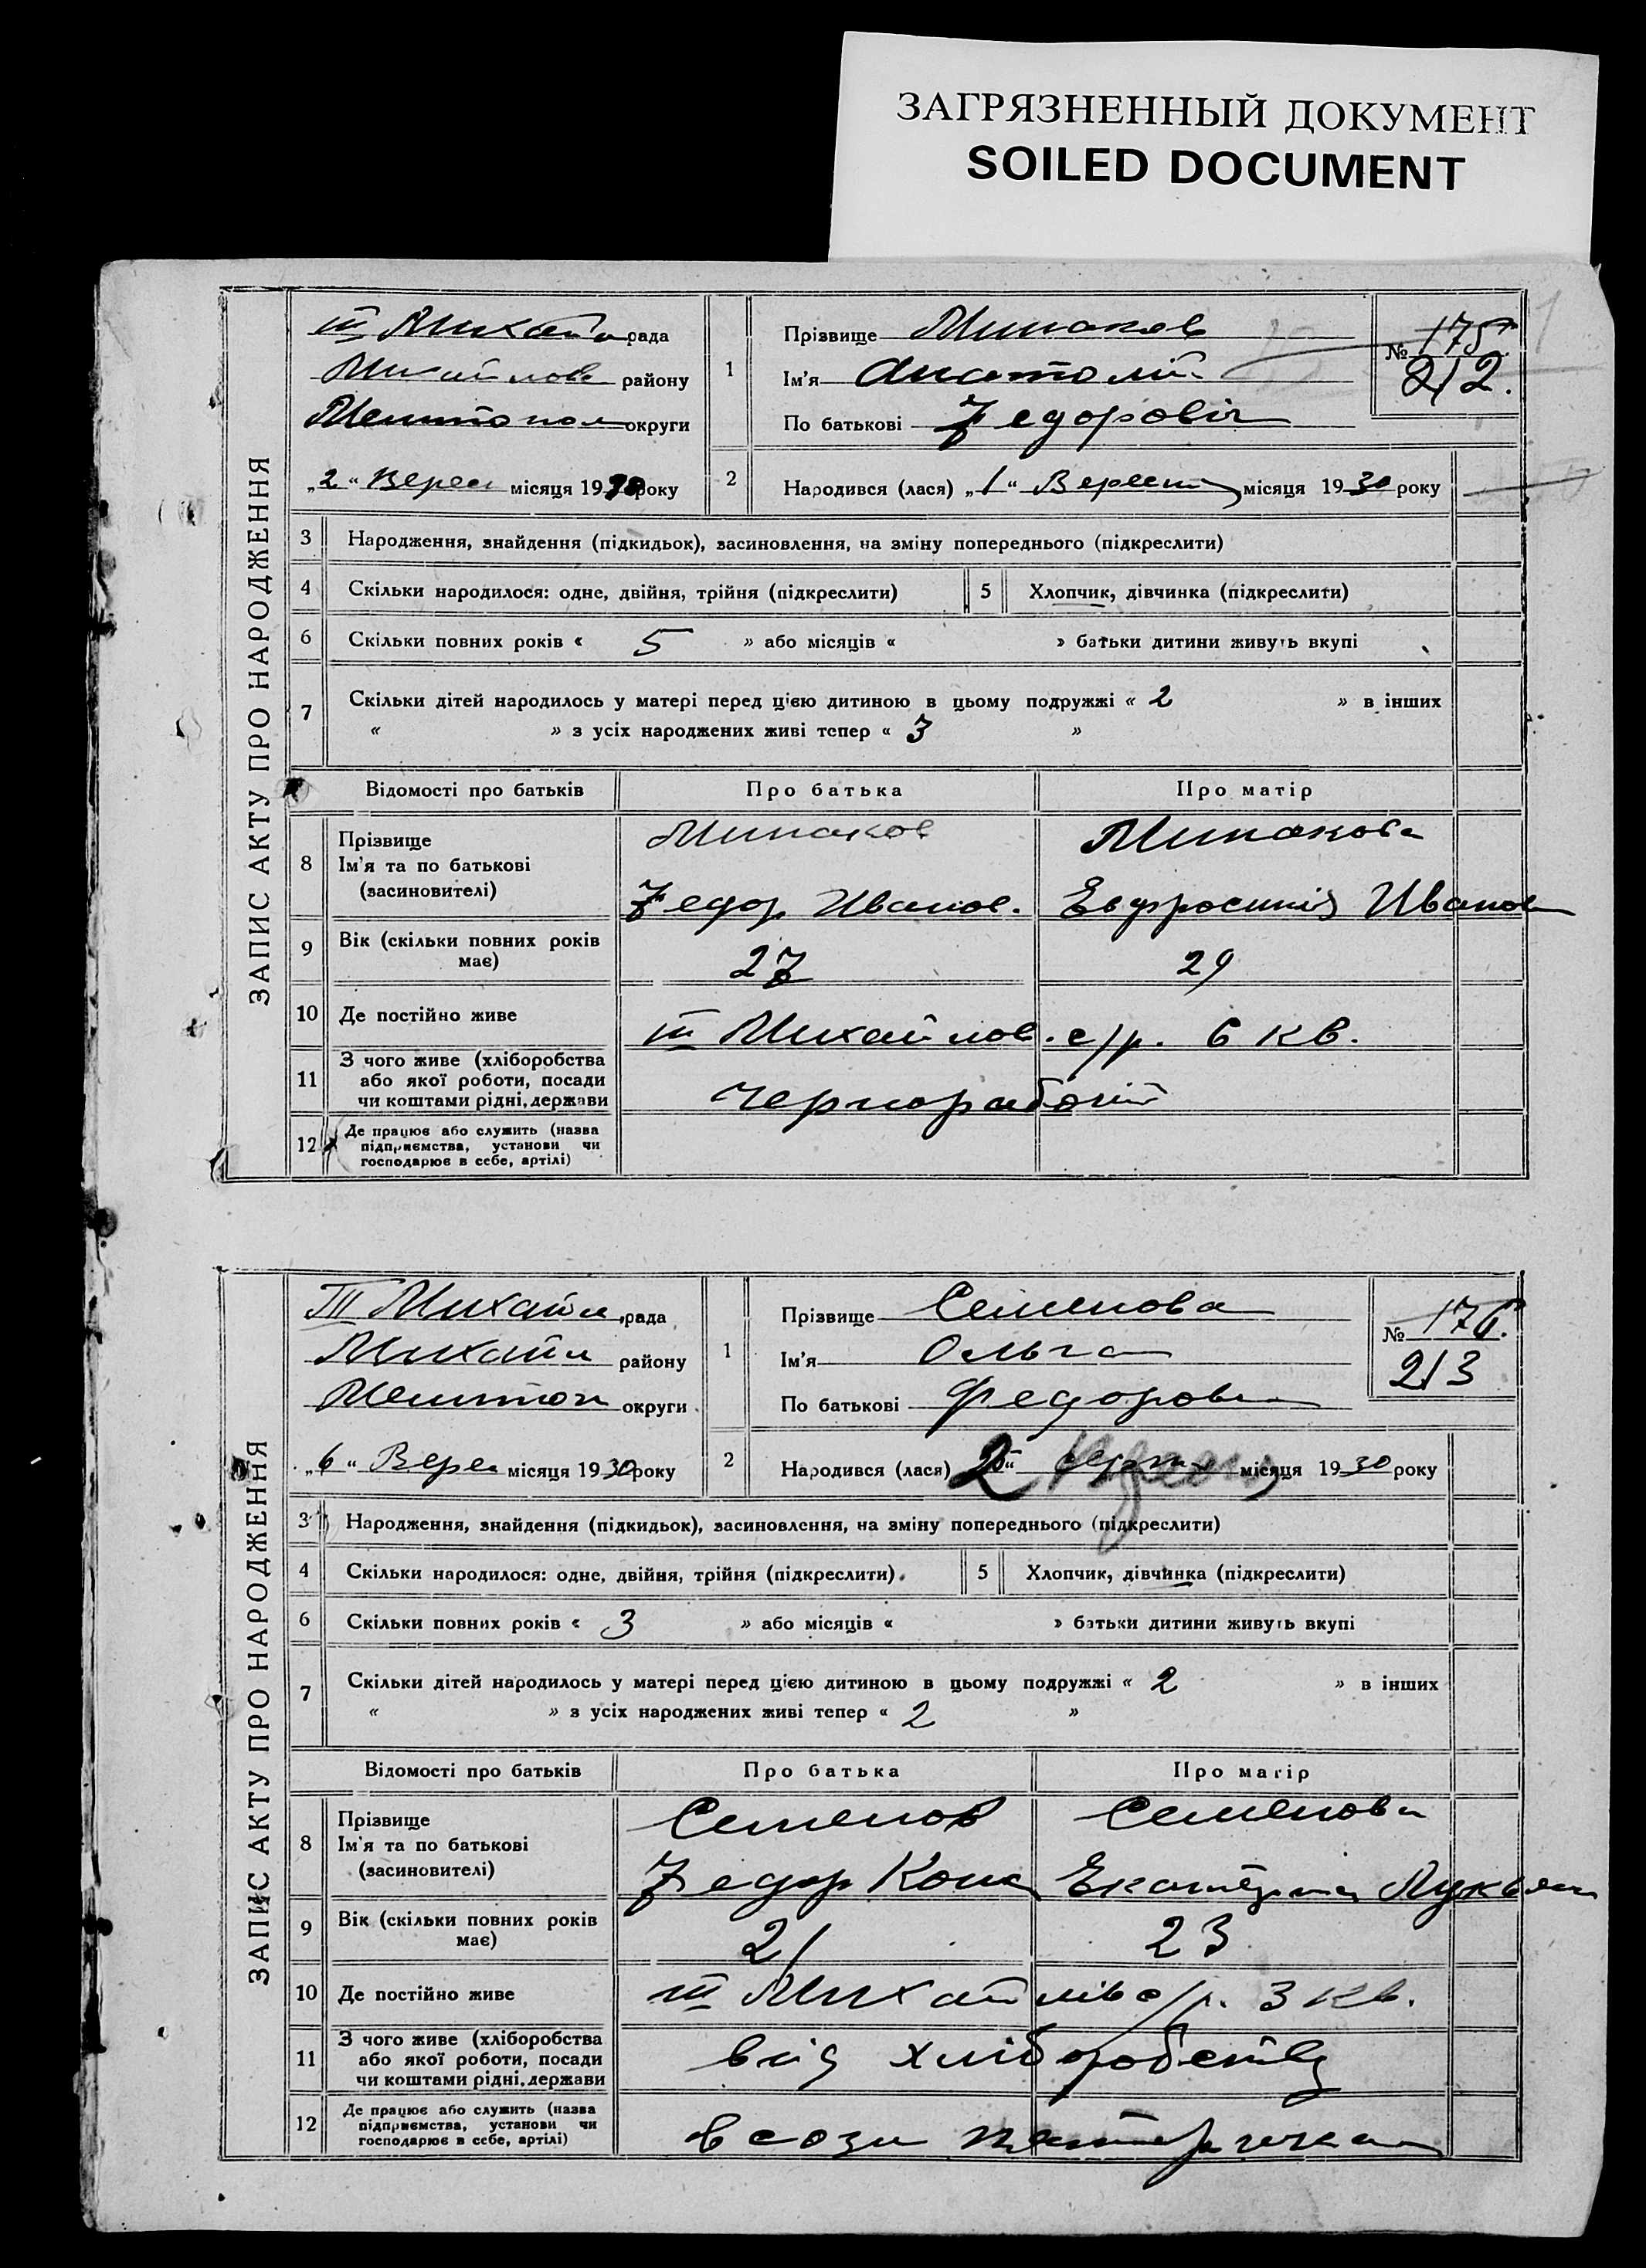 ЗАГРЯЗНЕННЫЙ ДОКУМЕНТ
SOILED DOCUMENT
ЗАПИС АКТУ ПРО НАРОДЖЕННЯ
III Михайл рада
Михайлов району
Мелитопол округи
„2“ Верес місяця 1930 року
1
Прізвище Минаков
Ім'я Анатолій
По батькові Федоровіч
№ 175
212.
2
Народився (лася) „1“ Вересня місяця 1930 року
3 Народження, знайдення (підкидьок), засиновлення, на зміну попереднього (підкреслити)
4 Скільки народилося: одне, двійня, трійня (підкреслити) 5 Хлопчик, дівчинка (підкреслити)
6 Скільки повних років « 5 » або місяців « » батьки дитини живуть вкупі
7 Скільки дітей народилось у матері перед цією дитиною в цьому подружжі « 2 » в інших
« » з усіх народжених живі тепер « 3 »
Відомості про батьків Про батька Про матір
8 Прізвище Минаков Минакова
Ім'я та по батькові
(засиновителі) Федор Иванов. Евфросинія Иванов
9 Вік (скільки повних років має) 27 29
10 Де постійно живе III Михайлов. с/р. 6 кв.
11 З чого живе (хліборобства
або якої роботи, посади
чи коштами рідні, держави Чернорабочий
12 Де працює або служить (назва
підприємства, установи чи
господарює в себе, артілі)
ЗАПИС АКТУ ПРО НАРОДЖЕННЯ
III Михайл рада
Михайл району
Мелитоп округи
„6“ Верес місяця 1930 року
1
Прізвище Семенова
Ім'я Ольга
По батькові Федоровна
№ 176.
213
2
Народився (лася) 2 місяця 1930 року
3 Народження, знайдення (підкидьок), засиновлення, на зміну попереднього (підкреслити)
4 Скільки народилося: одне, двійня, трійня (підкреслити) 5 Хлопчик, дівчинка (підкреслити)
6 Скільки повних років « 3 » або місяців « » батьки дитини живуть вкупі
7 Скільки дітей народилось у матері перед цією дитиною в цьому подружжі « 2 » в інших
« » з усіх народжених живі тепер « 2 »
Відомості про батьків Про батька Про матір
8 Прізвище Семенов Семенова
Ім'я та по батькові
(засиновителі) Федор Екатерина Лукьян
9 Вік (скільки повних років має) 21 23
10 Де постійно живе III Михайлів с/р. 3 кв.
11 З чого живе (хліборобства
або якої роботи, посади
чи коштами рідні, держави від хліборобства
12 Де працює або служить (назва
підприємства, установи чи
господарює в себе, артілі) в созі